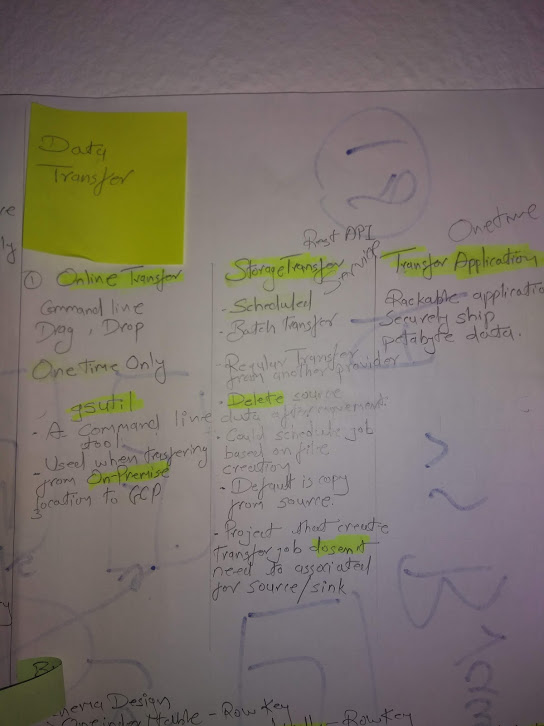 Data
Transfer
① Online Transfer
Command line
Drag, Drop
One Time Only
gsutil
- A Command line
tool.
- Used when trasfering
from On Premise
location to GCP
Rest API
Storage Transfer Service
- Scheduled
- Batch Transfer
- Regular Transfer
from another provider
- Delete source
data after movement.
- Could schedule job
based on file
creation
- Default is copy
from source.
- Project that create
transfer job dosent
need to associated
for source/sink
Onetime
Transfer Application
Rackable applicatio
Securely ship
petabyte data.
B.
hema Design
- Row Key
- Row Key